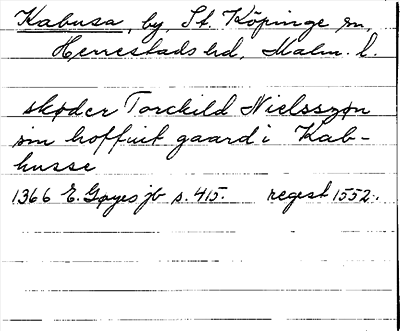 Kabusa, by, St. Köpinge sn,
Herrestads hd, Malm. l.
skøder Torckild Nielsszøn
sin hoffuit gaard i Kab-
husse
1366 E. Gøyes jb s. 415. regest 1552.